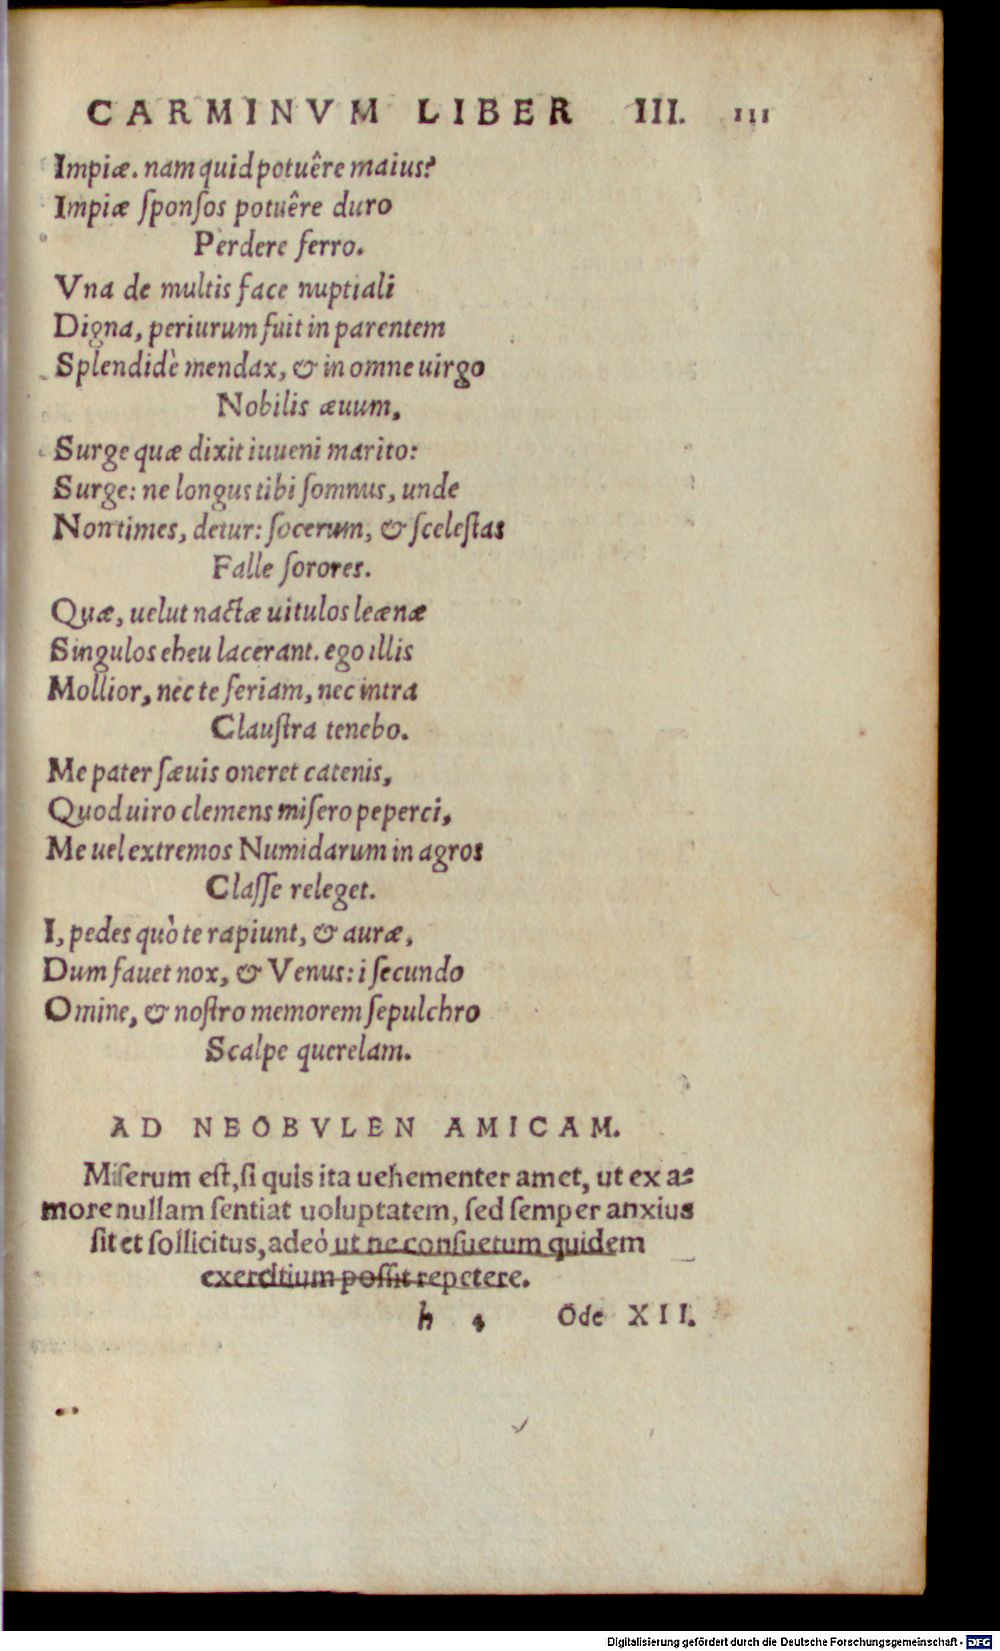 CARMINVM LIBER III. 111
Impiæ. nam quid potuêre maius?
Impiæ ſponſos potuêre duro
Perdere ferro.
Vna de multis face nuptiali
Digna, periurum fuit in parentem
Splendidè mendax, & in omne uirgo
Nobilis æuum,
Surge quæ dixit iuueni marito:
Surge: ne longus tibi ſomnus, unde
Non times, detur: ſocerum, & ſceleſtas
Falle ſorores.
Quæ, uelut nactæ uitulos leænæ
Singulos eheu lacerant. ego illis
Mollior, nec te feriam, nec intra
Clauſtra tenebo.
Me pater ſæuis oneret catenis,
Quod uiro clemens miſero peperci,
Me uel extremos Numidarum in agros
Claſſe releget.
I, pedes quò te rapiunt, & auræ,
Dum fauet nox, & Venus: i ſecundo
Omine, & noſtro memorem ſepulchro
Scalpe querelam.
AD NEOBVLEN AMICAM.
Miſerum eſt, ſi quis ita uehementer amet, ut ex a-
more nullam ſentiat uoluptatem, ſed ſemper anxius
ſit et ſollicitus, adeò ut ne conſuetum quidem
exercitium poſſit repetere.
h 4 Ode XII.
Digitalisierung gefördert durch die Deutsche Forschungsgemeinschaft - DFG